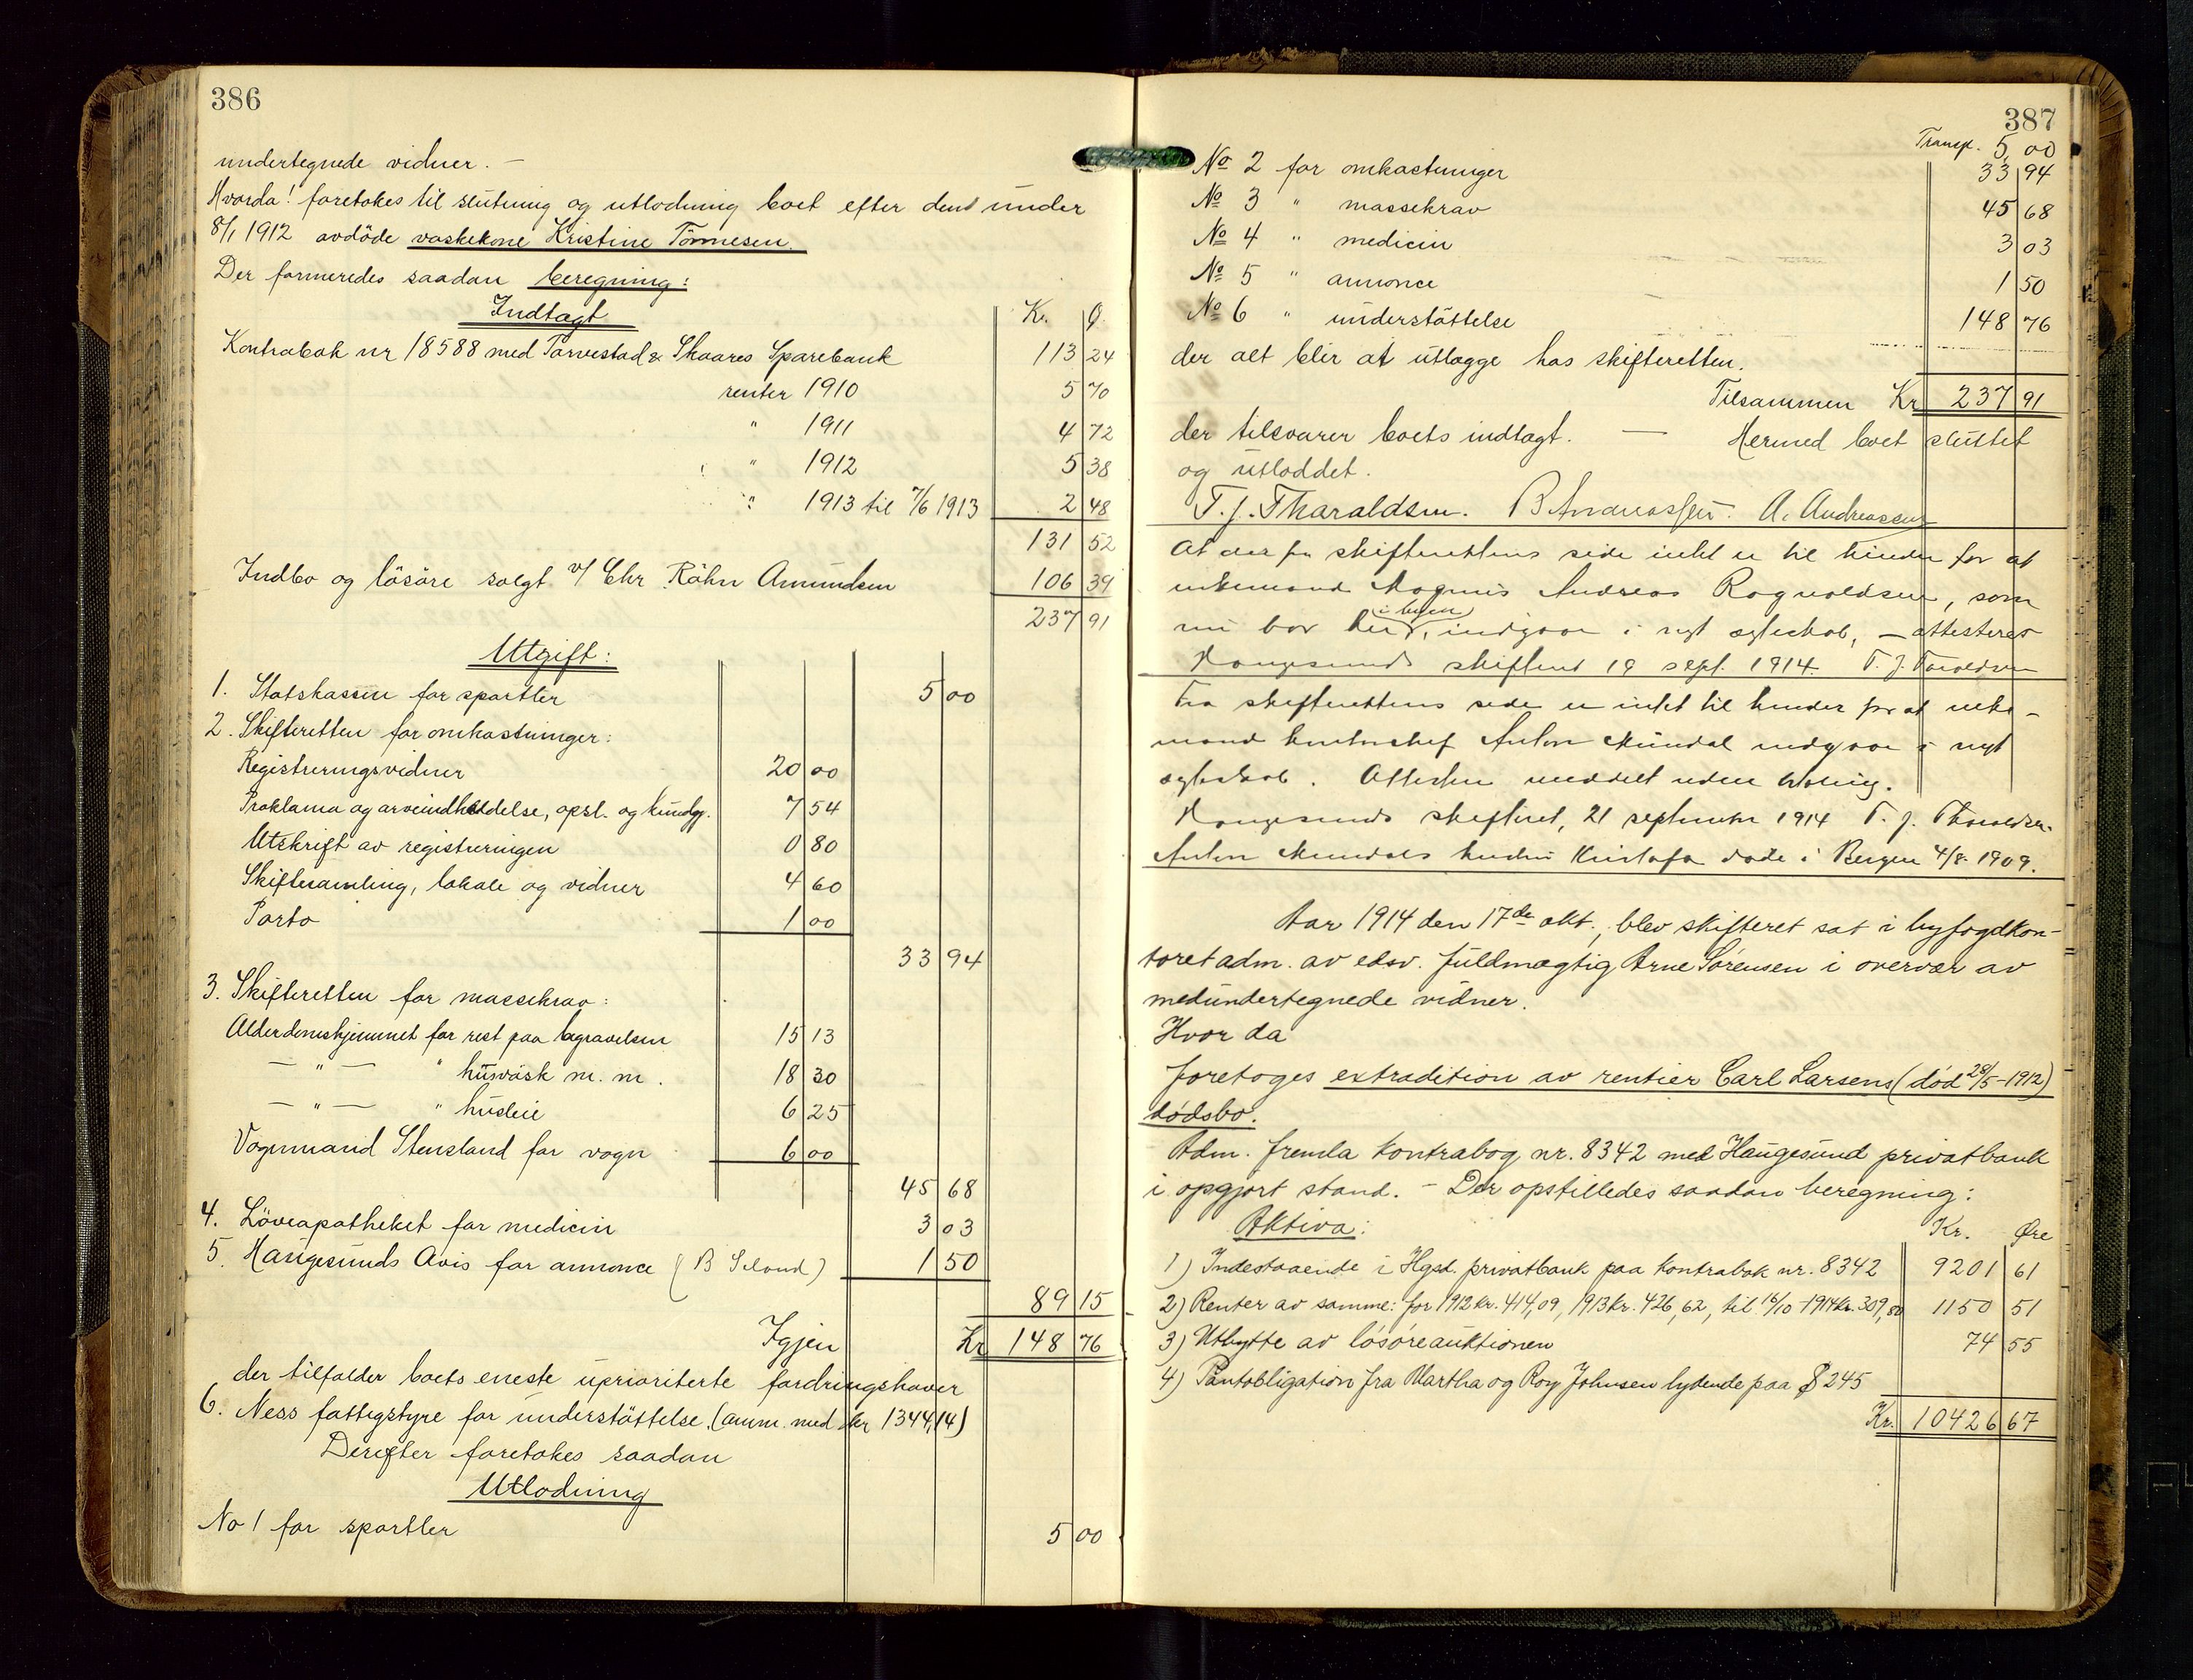 386
undertegnede vidner. —
Hvorda! foretokes til slutning og utlodning boet efter den under
8/1 1912 avdöde vaskekone Kristine Tönnesen.
Der formeredes saadan beregning:
Indtægt
Kr. Ø.
Kontrabok nr 18588 med Torvestad & Skaares Sparebank 113 24
renter 1910 5 70
" 1911 4 72
" 1912 5 38
" 1913 til 7/6 1913 2 48
131 52
Indbo og lösöre solgt v/ Chr. Röhn Amundsen 106 39
237 91
Utgift:
1. Statskassen for sportler 5 00
2. Skifteretten for omkostninger:
Registreringsvidner 20 00
Proklama og arveindkaldelse, opsl. og kundgj. 7 54
Utskrift av registreringen 0 80
Skiftesamling, lokale og vidner 4 60
Porto 1 00
33 94
3. Skifteretten for massekrav:
Alderdomshjemmet for rest paa begravelsen 15 13
— " — " husvask m. m. 18 30
— " — " husleie 6 25
Vognmand Stensland for vogn 6 00
45 68
4. Löveapotheket for medicin 3 03
5. Haugesunds Avis for annonce (B Seland) 1 50
89 15
Igjen Kr 148 76
der tilfalder boets eneste uprioriterte fordringshaver
6. Ness fattigstyre for understöttelse. (anm. med kr 1344,14)
Derefter foretokes saadan
Utlodning
No 1 for sportler 5 00
387
Transp. 5 00
No 2 for omkostninger 33 94
No 3 " massekrav 45 68
No 4 " medicin 3 03
No 5 " annonce 1 50
No 6 " understöttelse 148 76
der alt blir at utlægge hos skifteretten.
Tilsammen Kr 237 91
der tilsvarer boets indtægt. — Hermed boet sluttet
og utloddet.
T. J. Tharaldsen. B Andreassen. A. Andreassen
At der fra skifterettens side intet er til hinder for at
enkemand Magnus Andreas Ragnvaldsen, som
nu bor her (i byen), indgaar i nyt egteskab, — attesteres
Haugesunds skifteret 18 sept. 1914. T. J. Taraldsen
Fra skifterettens side er intet til hinder for at enke-
mand kontorchef Anton Mundal indgaar i nyt
egteskab. Attesten meddelt uden betaling.
Haugesunds skifteret, 21 september 1914 T. J. Tharaldsen.
Anton Mundals hustru Kristofa døde i Bergen 4/8 1909.
Aar 1914 den 17de okt., blev skifteret sat i byfogdkon-
toret adm. av edsv. fuldmægtig Arne Sørensen i overvær av
medundertegnede vidner.
Hvor da
foretoges extradition av rentier Carl Larsens (død 28/5-1912)
dødsbo.
Adm. fremla kontrabog nr. 8342 med Haugesund privatbank
i opgjort stand. - Der opstilledes saadan beregning:
Aktiva: Kr. Øre
1) Indestaaende i Hgsd. privatbank paa kontrabok nr. 8342 9201 61
2) Renter av samme: for 1912 kr. 414,09, 1913 kr. 426,62, til 16/10-1914 kr. 309,80 1150 51
3) Utbytte av løsøreauktionen 74 55
4) Pantobligation fra Martha og Roy Johnsen lydende paa $ 245
Kr. 10426 67